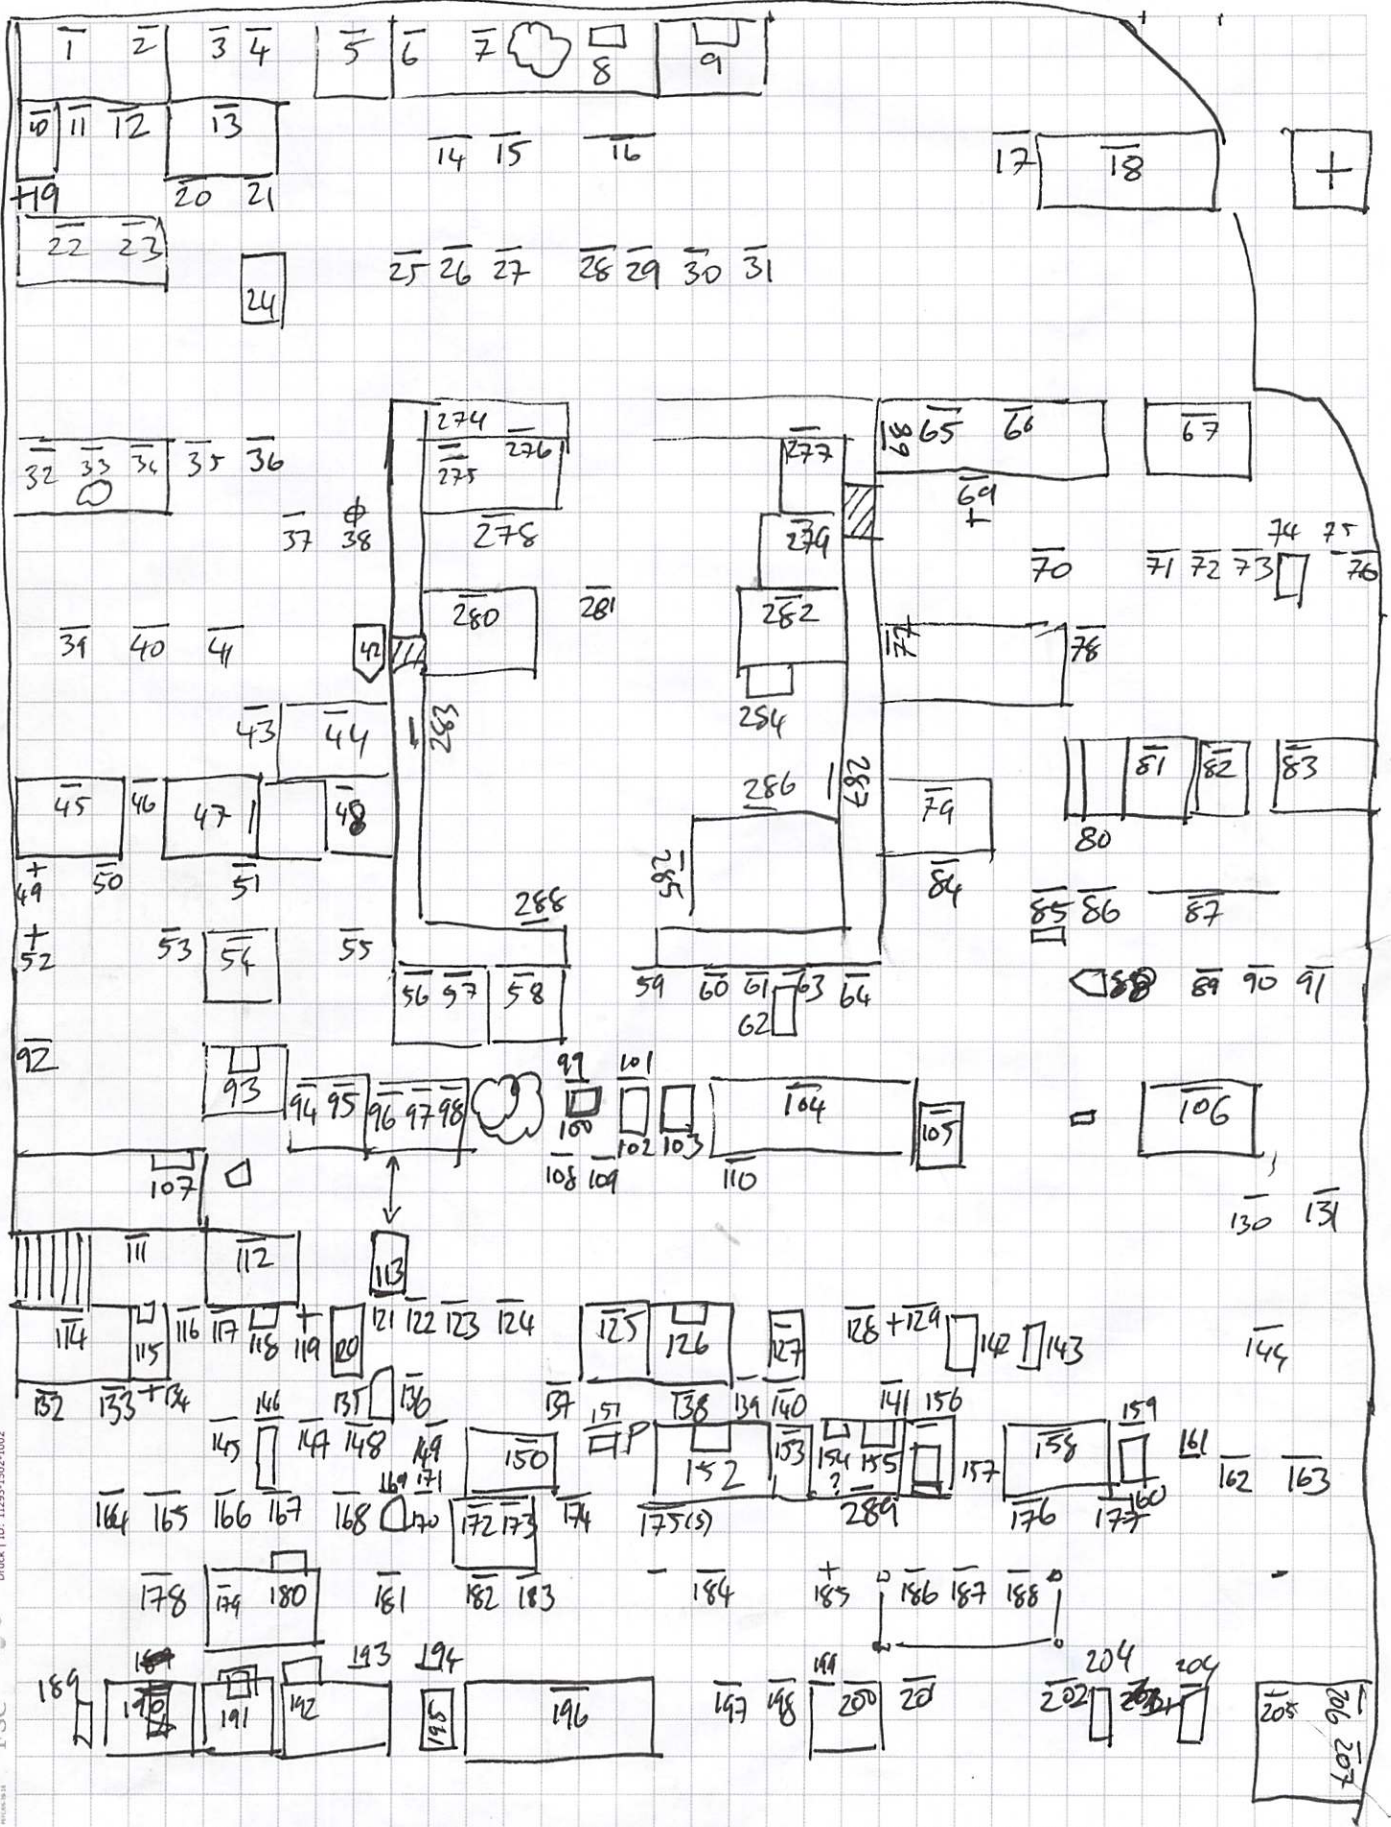 1 2 3 4 5 6 7 8 9
10 11 12 13
14 15 16 17 18 +
+19 20 21
22 23
24 25 26 27 28 29 30 31
274 276 277 65 66 67
275
32 33 34 35 36
37 38 278 279 69
+
70 71 72 73 74 75 76
280 281 282
39 40 41 42 77 78
43 44 283 284
45 46 47 48 286 287 79 81 82 83
80
49 50 51 285 84
288 85 86 87
52 53 54 55
56 57 58 59 60 61 62 63 64 88 89 90 91
92
93 94 95 96 97 98 99 101 104 105 106
100 102 103
107 108 109 110
130 131
111 112 113
114 115 116 117 118 119 120 121 122 123 124 125 126 127 128 +129 142 143 144
132 133 +134 135 136 137 138 139 140 141 156
145 146 147 148 149 150 151 P 152 153 154 ? 155 157 158 159 161 162 163
160
164 165 166 167 168 169 170 171 172 173 174 175(s) 289 176 177
178 179 180 181 182 183 184 185 186 187 188
189 190 191 192 193 194 195 196 197 198 199 200 201 202 204 204 205 206 207